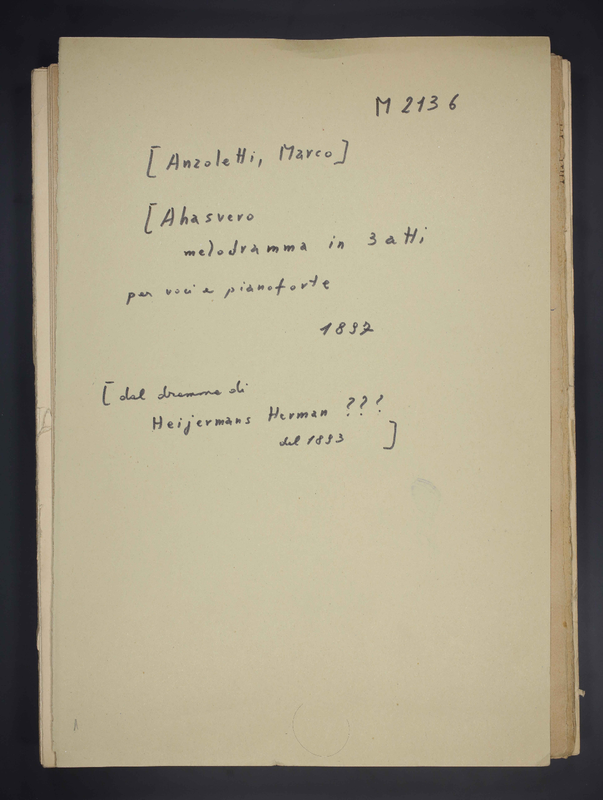 M 2136
[Anzoletti, Marco]
[Ahasvero
melodramma in 3 atti
per voci e pianoforte
1897
[dal dramma di
Heijermans Herman ???
del 1893 ]